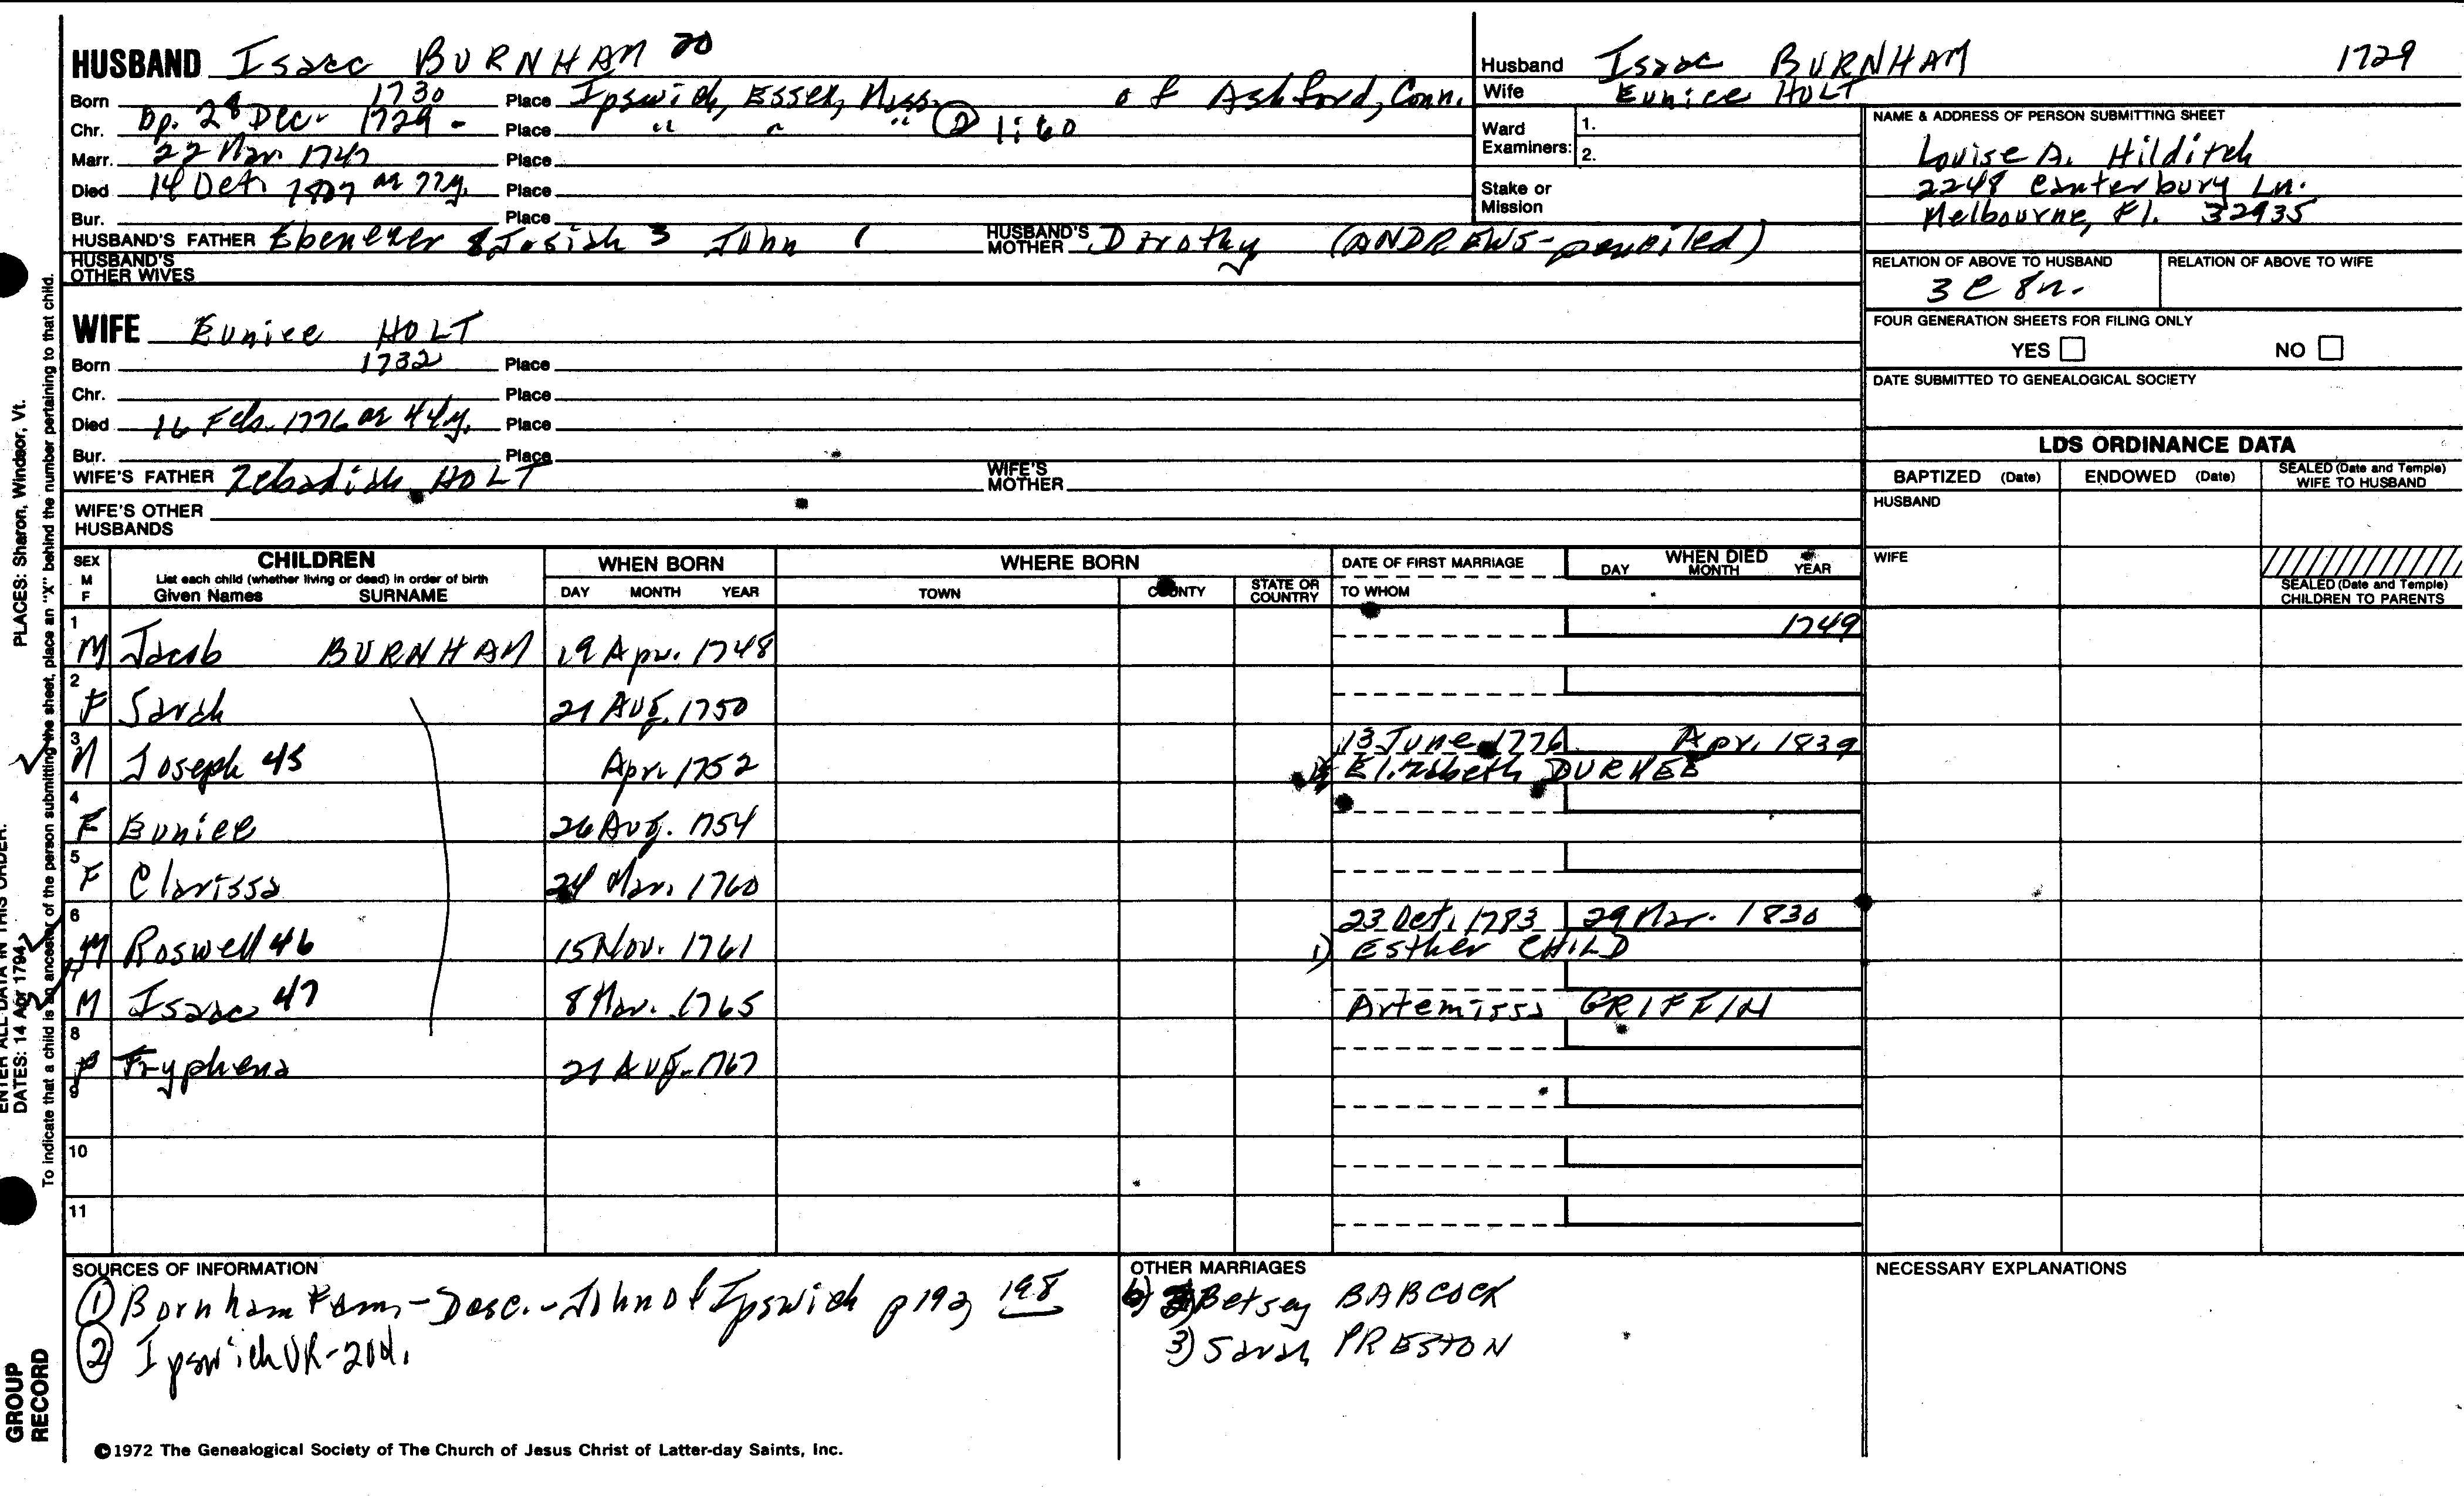 HUSBAND Isaac BURNHAM 20
Born 1730 Place Ipswich, Essex, Mass. of Ashford, Conn.
Chr. Bp. 28 Dec. 1729 - Place " " " ② 1:60
Marr. 22 Mar. 1747 Place
Died 14 Oct. 1807 ae 77y. Place
Bur. Place
HUSBAND'S FATHER Ebenezer 8 Josiah 3 John 1 HUSBAND'S MOTHER Dorothy (ANDREWS-penciled)
HUSBAND'S OTHER WIVES
Husband Isaac BURNHAM 1729
Wife Eunice HOLT
Ward Examiners: 1.
2.
Stake or Mission
NAME & ADDRESS OF PERSON SUBMITTING SHEET
Louise A. Hilditch
2248 Canterbury Ln.
Melbourne, Fl. 32935
RELATION OF ABOVE TO HUSBAND RELATION OF ABOVE TO WIFE
3 C 8r.
FOUR GENERATION SHEETS FOR FILING ONLY
YES NO
DATE SUBMITTED TO GENEALOGICAL SOCIETY
WIFE Eunice HOLT
Born 1732 Place
Chr. Place
Died 16 Feb. 1776 ae 44y. Place
Bur. Place
WIFE'S FATHER Zebadiah HOLT WIFE'S MOTHER
WIFE'S OTHER HUSBANDS
LDS ORDINANCE DATA
BAPTIZED (Date) ENDOWED (Date) SEALED (Date and Temple) WIFE TO HUSBAND
HUSBAND
WIFE
SEALED (Date and Temple) CHILDREN TO PARENTS
SEX M F
CHILDREN
List each child (whether living or dead) in order of birth
Given Names SURNAME
WHEN BORN
DAY MONTH YEAR
WHERE BORN
TOWN COUNTY STATE OR COUNTRY
DATE OF FIRST MARRIAGE
TO WHOM
WHEN DIED
DAY MONTH YEAR
1 M Jacob BURNHAM 19 Apr. 1748 1749
2 F Sarah 21 Aug. 1750
3 M Joseph 45 Apr. 1752 13 June 1776 Apr. 1839
Elizabeth DURKEE
4 F Eunice 26 Aug. 1754
5 F Clarissa 24 Mar. 1760
6 M Roswell 46 15 Nov. 1761 23 Oct. 1783 29 Mar. 1830
1) Esther CHILD
7 M Isaac 47 8 Mar. 1765 Artemissa GRIFFIN
8 F Tryphena 21 Aug. 1767
9
10
11
SOURCES OF INFORMATION
① Burnham Fam.-Desc.-John of Ipswich p 192, 198
② Ipswich VR-20d.
OTHER MARRIAGES
6) 2) Betsey BABCOCK
3) Sarah PRESTON
NECESSARY EXPLANATIONS
©1972 The Genealogical Society of The Church of Jesus Christ of Latter-day Saints, Inc.
ENTER ALL DATA IN THIS ORDER:
DATES: 14 Apr 1794
PLACES: Sharon, Windsor, Vt.
To indicate that a child is an ancestor of the person submitting the sheet, place an "X" behind the number pertaining to that child.
GROUP RECORD